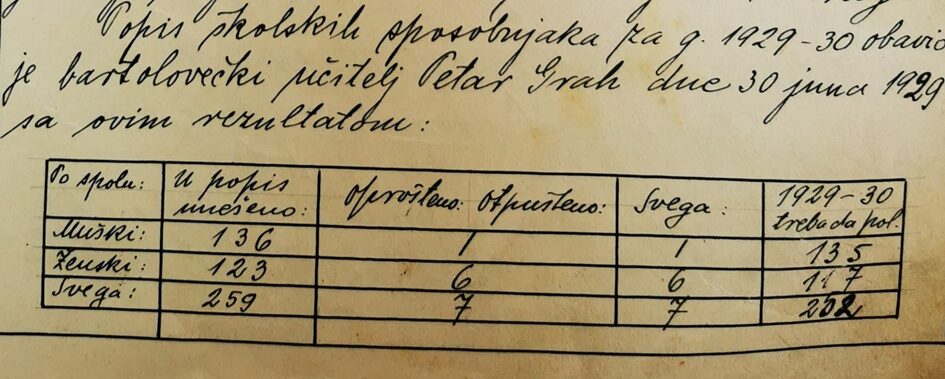 Popis školskih sposobnjaka za g. 1929-30 obavio
je bartolovečki učitelj Petar Grah dne 30 juna 1929
sa ovim rezultatom:
Po spolu: U popis unešeno: Oprošteno: Otpušteno: Svega: 1929-30 treba da pol.
Muški: 136 1 1 135
Ženski: 123 6 6 117
Svega: 259 7 7